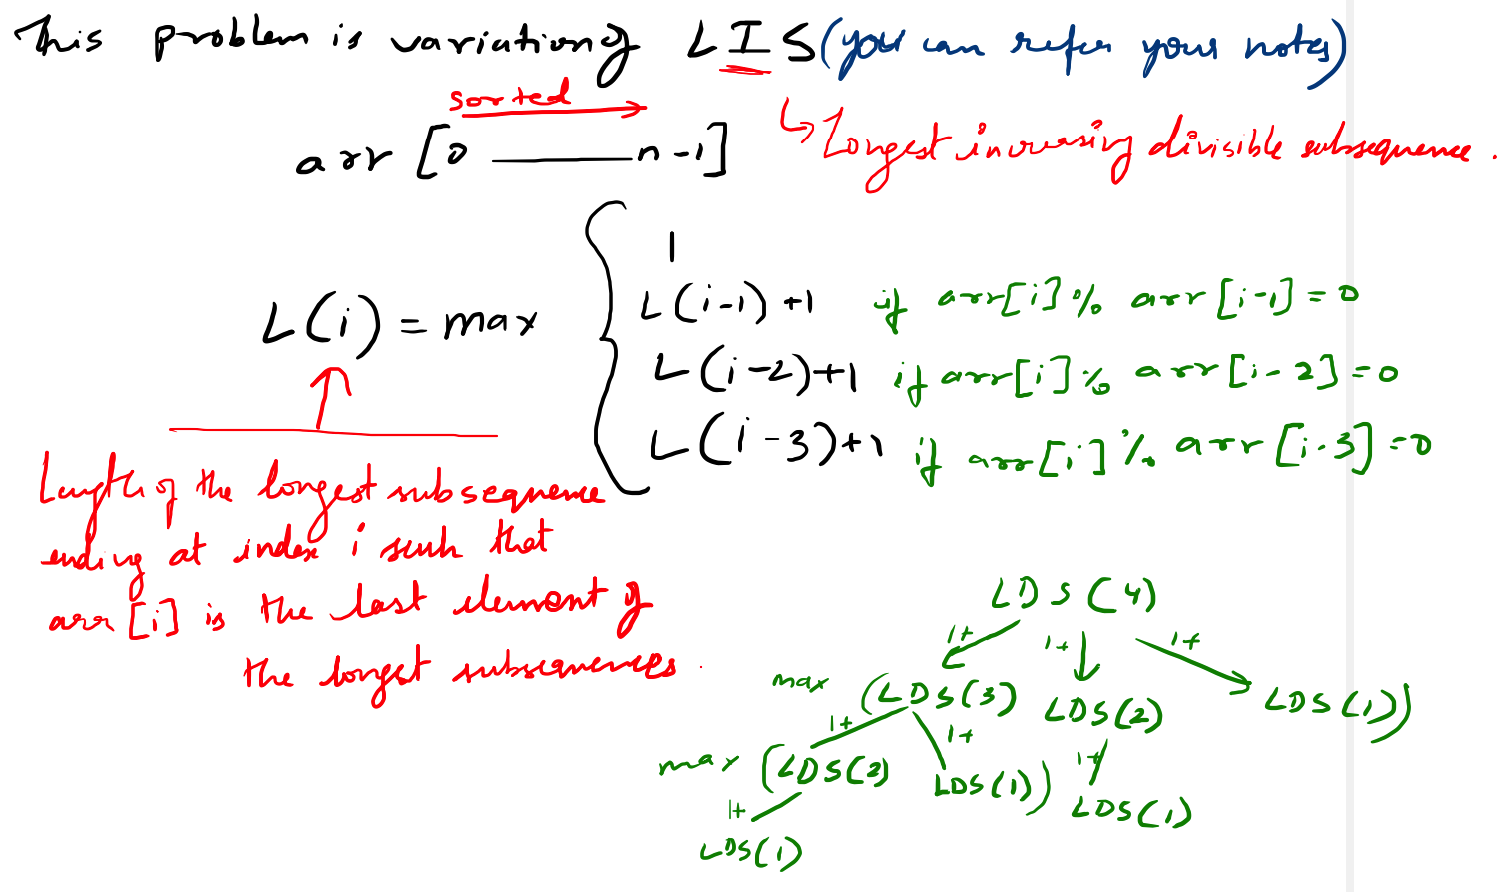 This problem is variation of LIS (you can refer your notes)
sorted
arr [0 ——— n-1]
↳ Longest increasing divisible subsequence.
L(i) = max { 1
L(i-1)+1 if arr[i] % arr[i-1] = 0
L(i-2)+1 if arr[i] % arr[i-2] = 0
L(i-3)+1 if arr[i] % arr[i-3] = 0
Length of the longest subsequence
ending at index i such that
arr[i] is the last element of
the longest subsequences.
LDS(4)
1+ 1+ 1+
max (LDS(3) LDS(2) LDS(1))
1+ 1+ 1+
max (LDS(2) LDS(1)) LDS(1)
1+
LDS(1)